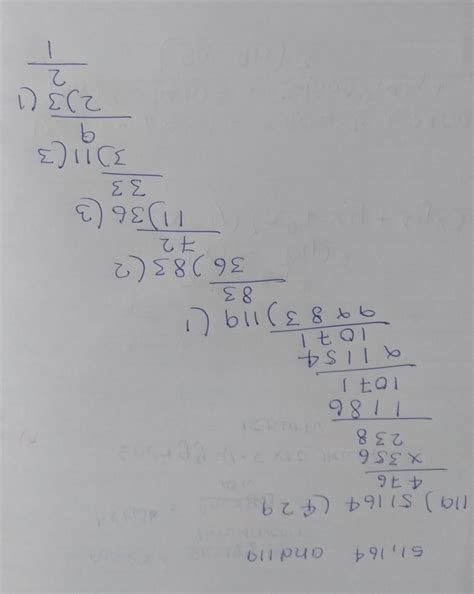 51,164 and 119
119) 51164 (429
476
x356
238
1186
1071
x1154
1071
xx83) 119 (1
83
36) 83 (2
72
11) 36 (3
33
3) 11 (3
9
2) 3 (1
2
1